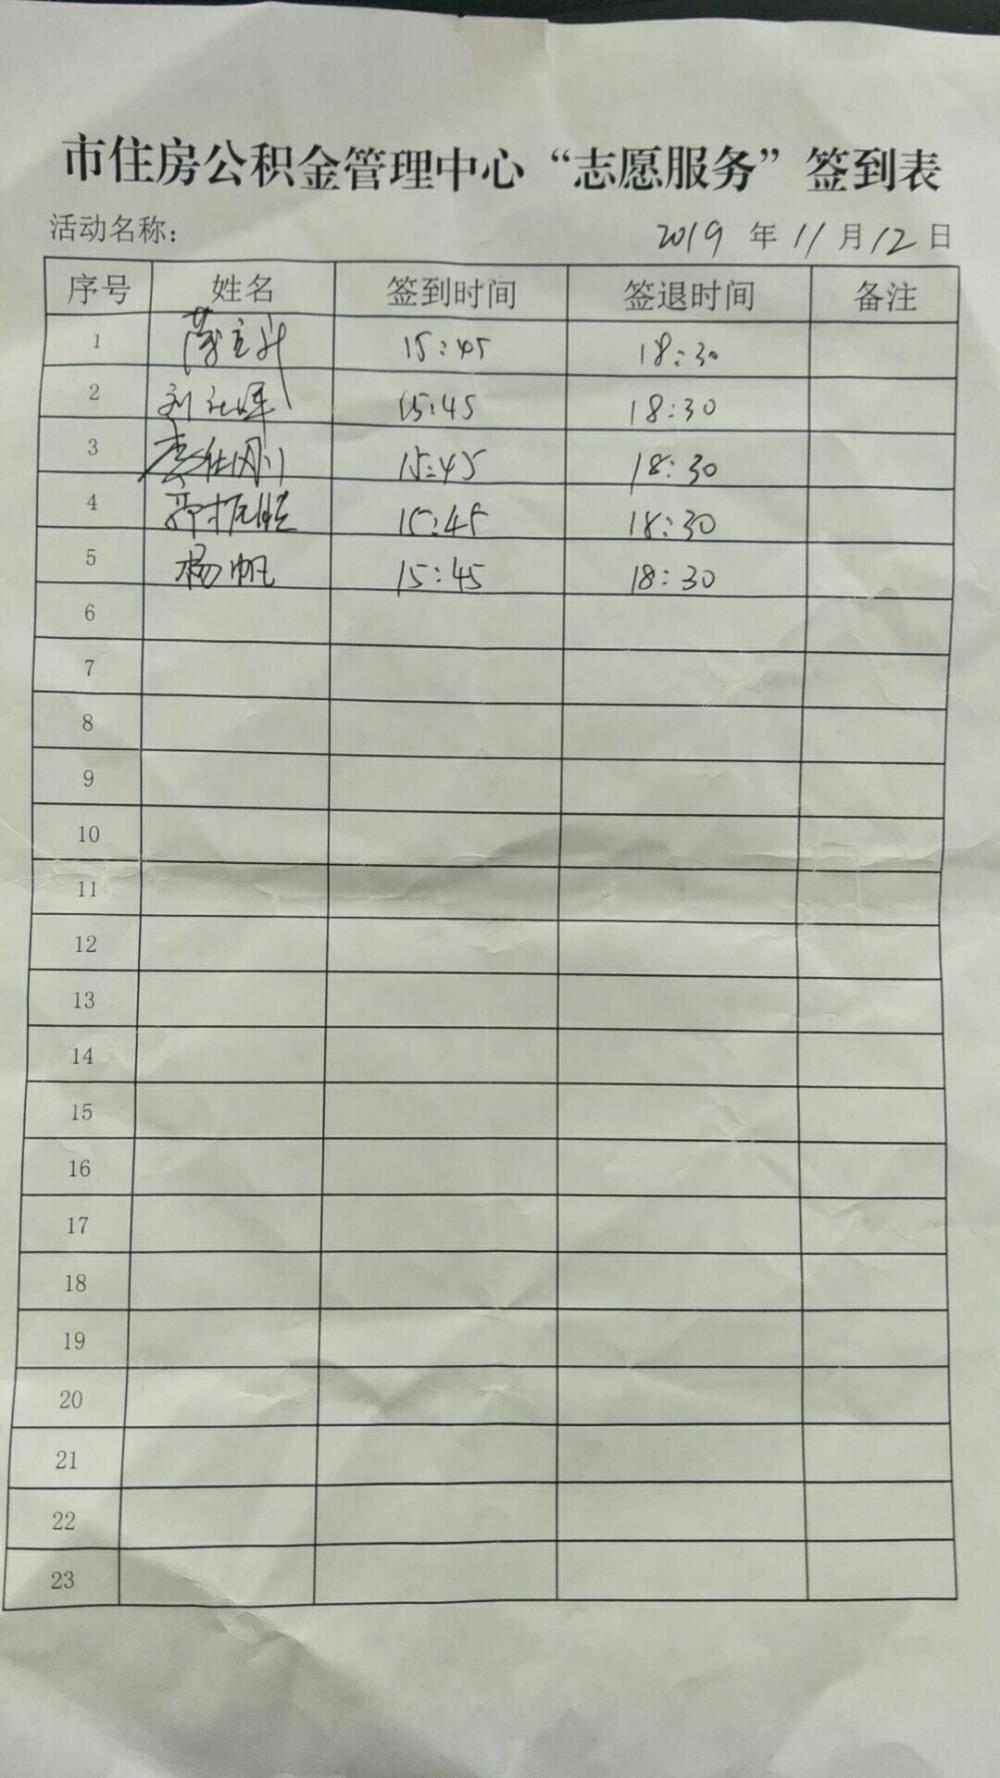 市住房公积金管理中心“志愿服务”签到表
活动名称： 2019 年 11 月 12 日
序号 姓名 签到时间 签退时间 备注
1 15:45 18:30
2 刘 15:45 18:30
3 李 15:45 18:30
4 15:45 18:30
5 杨帆 15:45 18:30
6
7
8
9
10
11
12
13
14
15
16
17
18
19
20
21
22
23